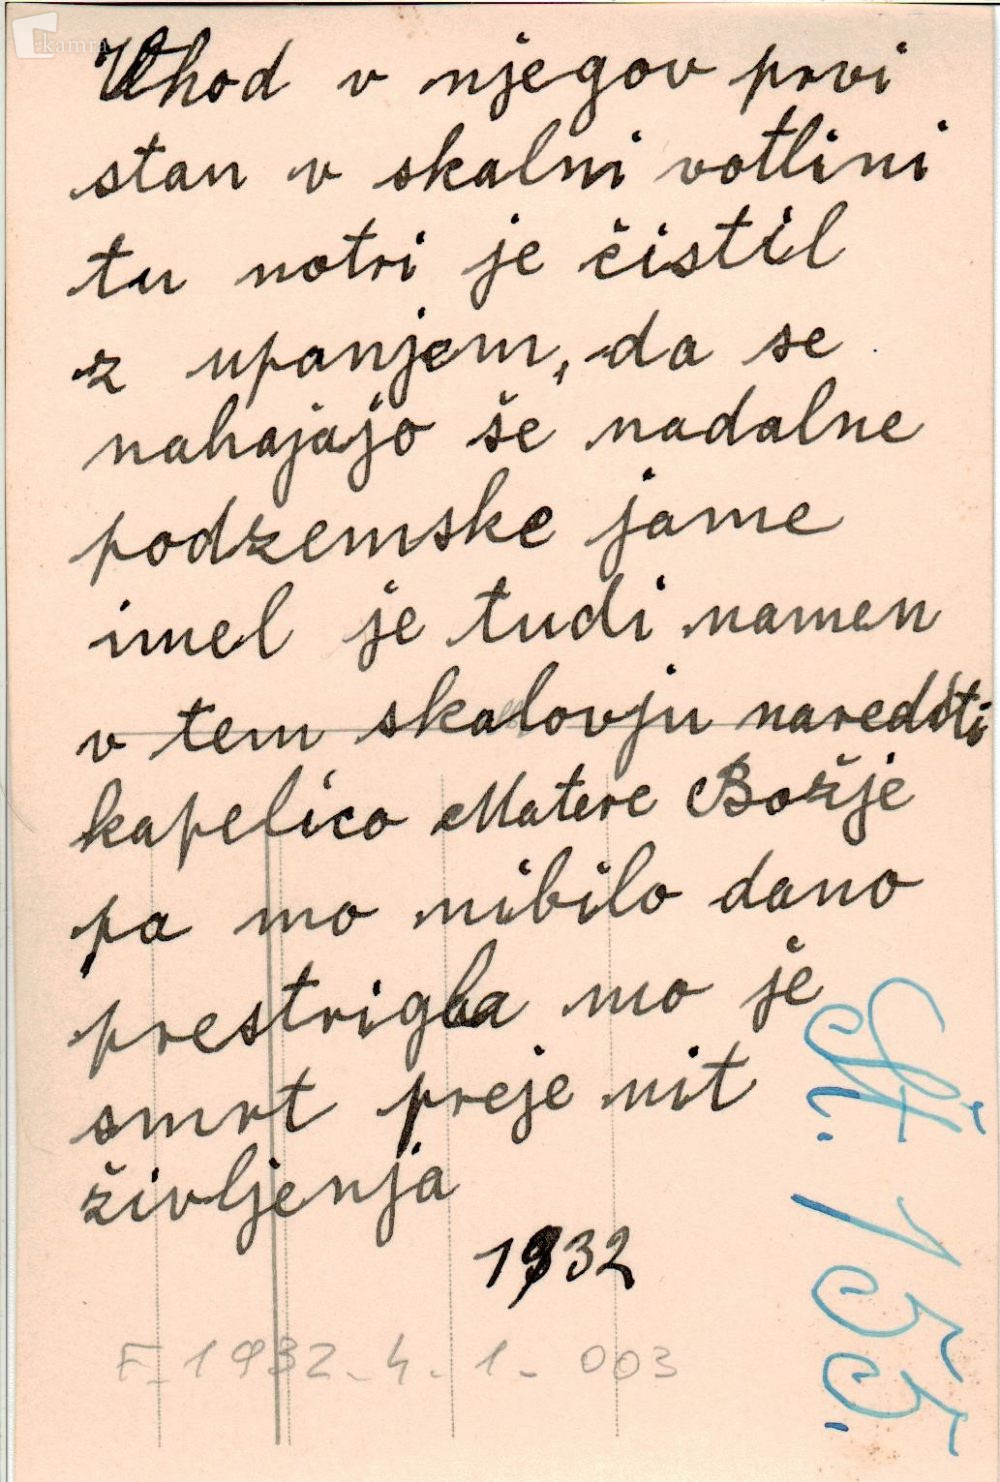 kamra
Vhod v njegov prvi
stan v skalni votlini
tu notri je čistil
z upanjem, da se
nahajajo še nadalne
podzemske jame
imel je tudi namen
v tem skalovju narediti
kapelico Matere Božje
pa mo nibilo dano
prestrigla mo je
smrt preje nit
življenja
1932
F_1932-4.1-003
Št. 155.